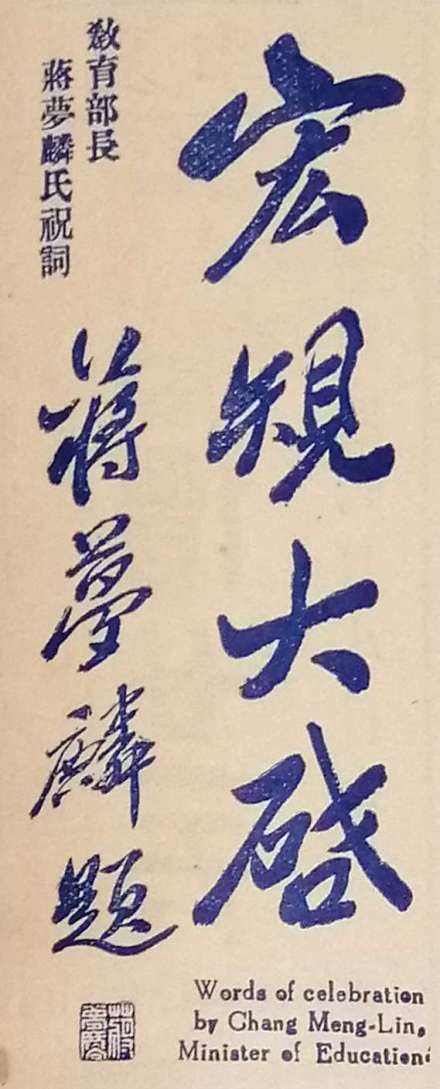 宏規大啓
教育部長
蔣夢麟氏祝詞
蔣夢麟題
Words of celebration
by Chang Meng-Lin,
Minister of Education